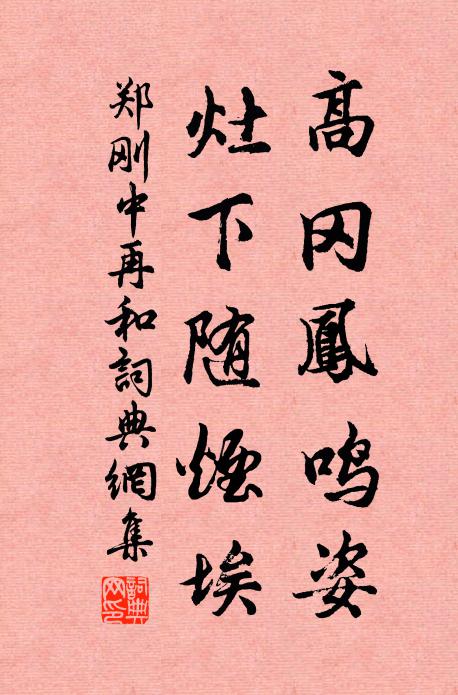 高冈鳳鸣姿
灶下随煙埃
郑刚中再和詞典網集
詞典網印